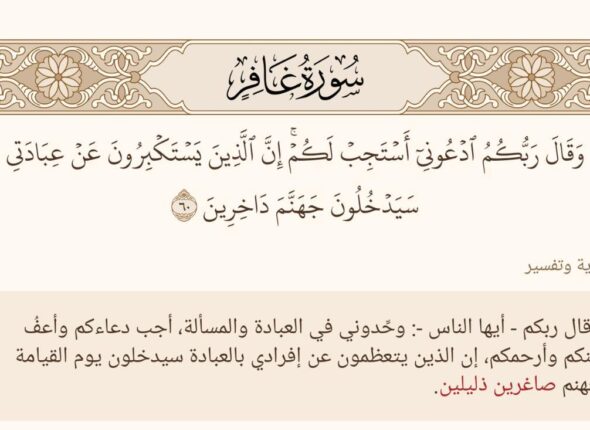 سُورَةُ غَافِرٍ
وَقَالَ رَبُّكُمُ ٱدۡعُونِيٓ أَسۡتَجِبۡ لَكُمۡۚ إِنَّ ٱلَّذِينَ يَسۡتَكۡبِرُونَ عَنۡ عِبَادَتِي
سَيَدۡخُلُونَ جَهَنَّمَ دَاخِرِينَ ٦٠
ية وتفسير
قال ربكم - أيها الناس -: وحِّدوني في العبادة والمسألة، أجب دعاءكم وأعفُ
نكم وأرحمكم، إن الذين يتعظمون عن إفرادي بالعبادة سيدخلون يوم القيامة
هنم صاغرين ذليلين.